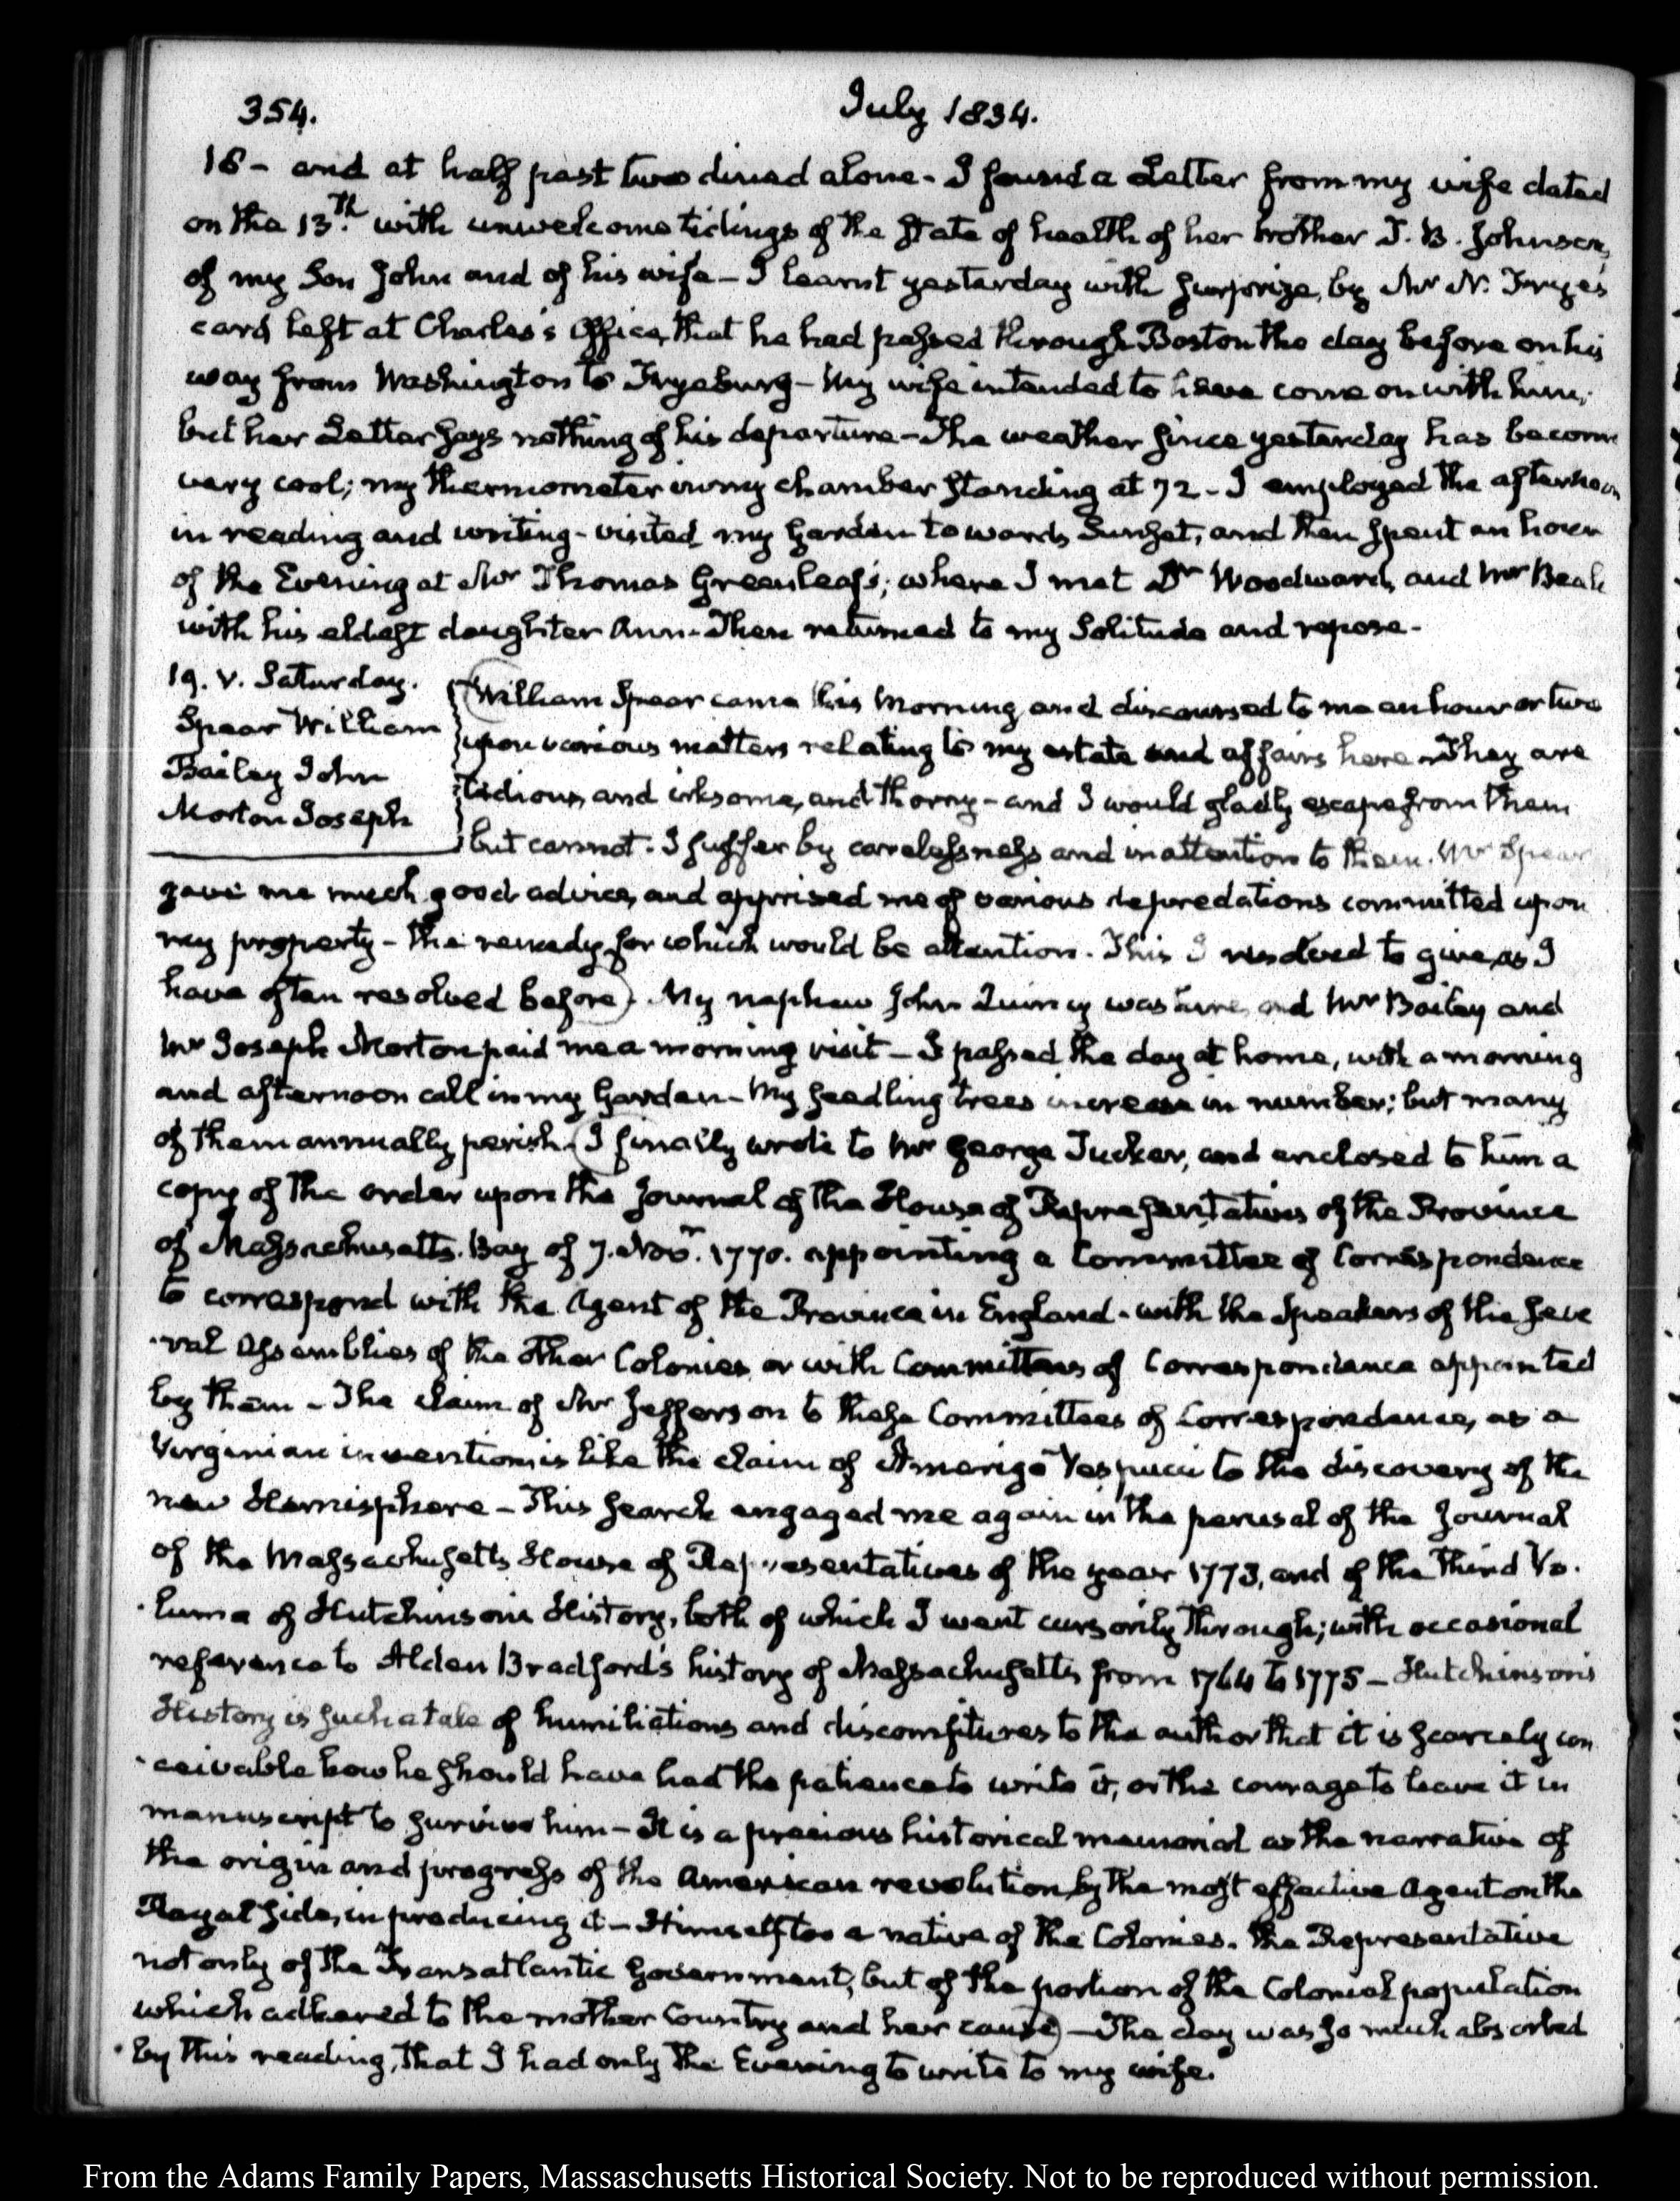 354.
July 1834.
18 - and at half past two dined alone - I found a Letter from my wife dated
on the 13.th with unwelcome tidings of the State of health of her brother T. B. Johnson,
of my Son John and of his wife - I learnt yesterday with surprize, by Mr N. Frye's
card left at Charles's Office, that he had passed through Boston the day before on his
way from Washington to Fryeburg - My wife intended to have come on with him;
but her Letter says nothing of his departure - The weather since yesterday has become
very cool; my thermometer in my chamber standing at 72 - I employed the afternoon
in reading and writing - visited my Garden towards Sunset, and then spent an hour
of the Evening at Mr Thomas Greenleaf's; where I met Dr Woodward, and Mr Beale
with his eldest daughter Ann - Then returned to my Solitude and repose -
19. V. Saturday.
Spear William
Bailey John
Morton Joseph
William Spear came this Morning and discoursed to me an hour or two
upon various matters relating to my estate and affairs here - They are
tedious, and irksome, and thorny - and I would gladly escape from them
but cannot. I suffer by carelessness and inattention to them. Mr Spear
gave me much good advice, and apprised me of various depredations committed upon
my property - the remedy for which would be attention. This I resolved to give, as I
have often resolved before). My nephew John Quincy was here, and Mr Bailey and
Mr Joseph Morton paid me a morning visit - I passed the day at home, with a morning
and afternoon call in my Garden - My seedling trees increase in number; but many
of them annually perish. (I finally wrote to Mr George Tucker, and enclosed to him a
copy of the order upon the Journal of the House of Representatives of the Province
of Massachusetts. Bay of 7. Novr. 1770. appointing a Committee of Correspondence
to correspond with the Agent of the Province in England - with the Speakers of the seve
-ral Assemblies of the other Colonies or with Committees of Correspondence appointed
by them - The claim of Mr Jefferson to these Committees of Correspondence, as a
Virginian invention, is like the claim of Amerigo Vespucci to the discovery of the
new Hemisphere - This search engaged me again in the perusal of the Journal
of the Massachusetts House of Representatives of the year 1773, and of the Third Vo.
-lume of Hutchinson's History, both of which I went cursorily through; with occasional
reference to Alden Bradford's history of Massachusetts from 1764 to 1775 - Hutchinson's
History is such a tale of humiliations and discomfitures to the author that it is scarcely con
-ceivable how he should have had the patience to write it, or the courage to leave it in
manuscript to survive him - It is a precious historical memorial as the narrative of
the origin and progress of the American revolution by the most effective Agent on the
Royal side, in producing it - Himself too a native of the Colonies. the Representative
not only of the Transatlantic Government, but of the portion of the Colonial population
which adhered to the mother Country and her cause) - The day was so much absorbed
by this reading, that I had only the Evening to write to my wife.
From the Adams Family Papers, Massaschusetts Historical Society. Not to be reproduced without permission.